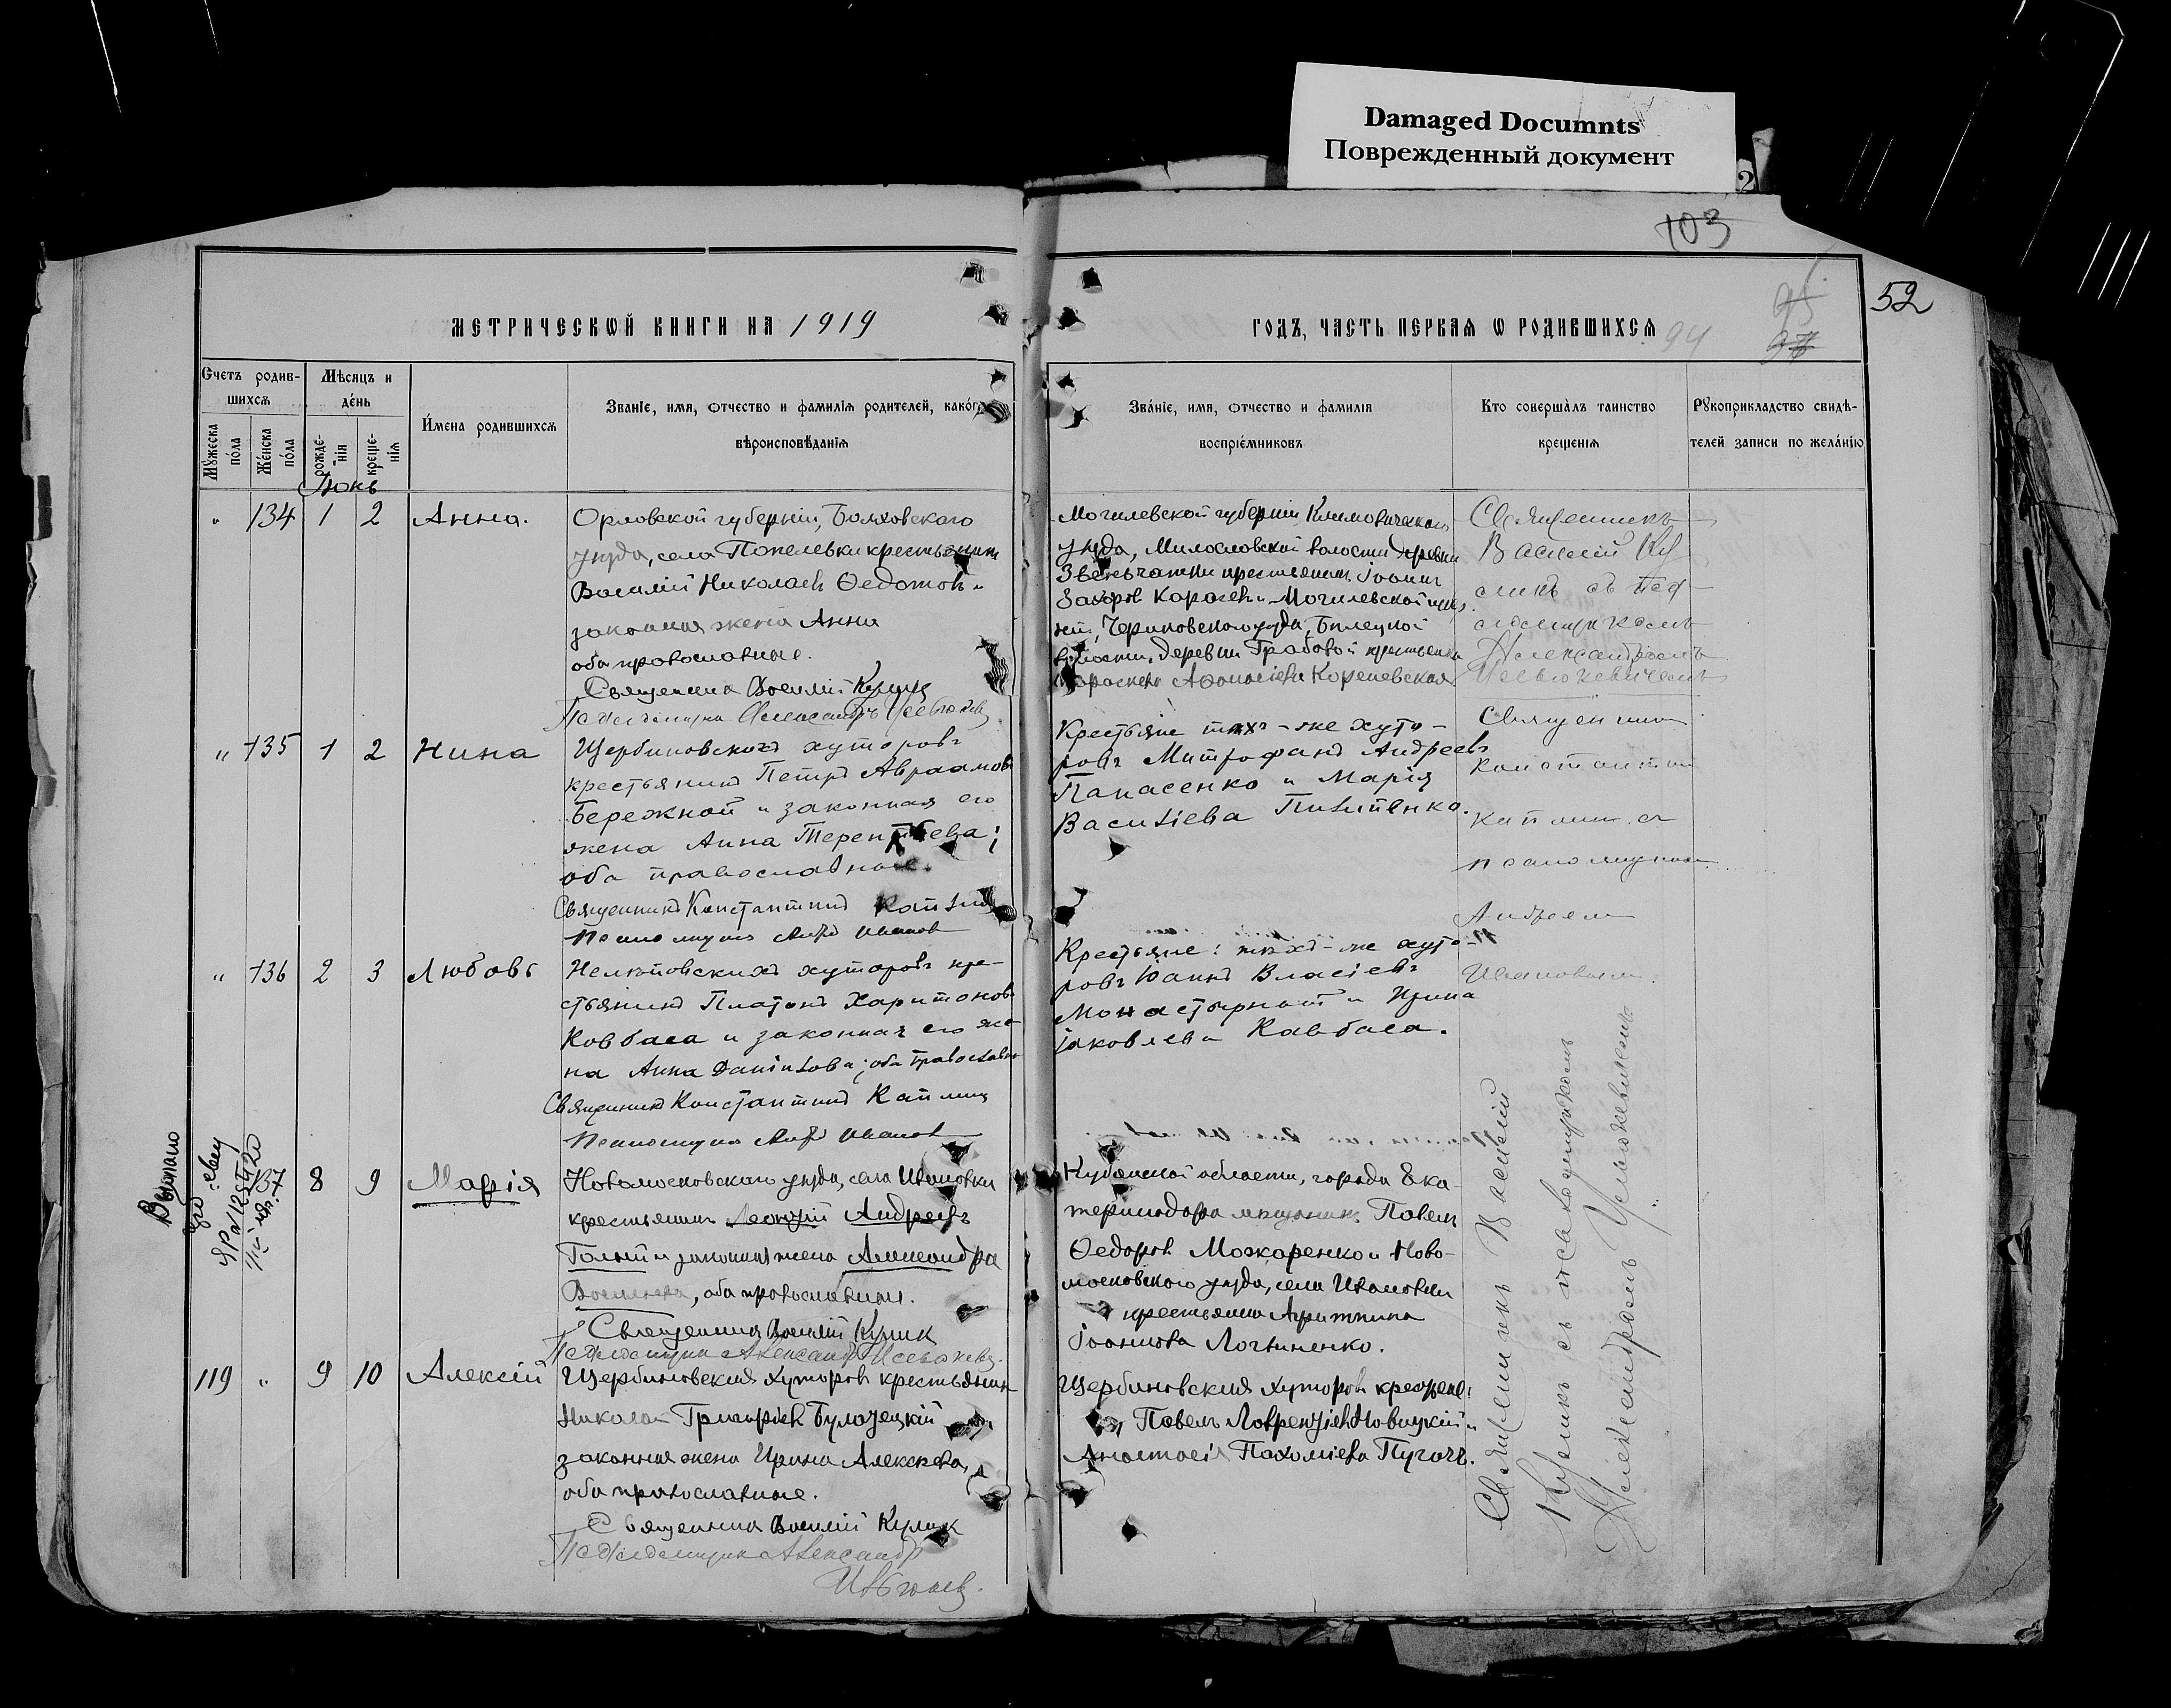 Damaged Documnts
Поврежденный документ
2
103
52
95
97
94
МЕТРИЧЕСКѠЙ КНИГИ НА 1919
ГОДЪ, ЧАСТЬ ПЕРВАЯ Ѡ РОДИВШИХСЯ
Счетъ родив-
шихсѧ
Мѹжеска пола
Женска пола
Мѣсяцъ и
день
рожде-
нія
креще-
нія
Имена родившихсѧ
Званіе, имя, отчество и фамилія родителей, какого
вѣроисповѣданія
Званіе, имя, отчество и фамилія
воспріемниковъ
Кто совершалъ таинство
крещенія
Рѹкоприкладство свидѣ-
телей записи по желанію
Іюнь
" 134 1 2 Анна.
Орловской губерніи, Болховскаго
уѣзда, села Попелевки крестьянинъ
Василій Николаевъ Ѳедотовъ и
законная жена Анна
оба православные.
Священникъ Василій Куликъ
Псаломщикъ Александръ
Могилевской губерніи Климовическаго
уѣзда, Милославской волости деревни
крестьянинъ Іоаннъ
Захаровъ и Могилевской губер
ніи, Чериковскаго уѣзда,
волости, деревни Грабовой крестьянка
Параскева Аѳанасіева Кореневская
Священникъ
Василій Ку
ликъ съ пса
ломщикомъ
Александромъ
" 135 1 2 Нина
Щербиновскихъ хуторовъ
крестьянинъ Петръ Авраамовъ
Бережной и законная его
жена Анна Терентьева;
оба православные.
Священникъ Константинъ
Псаломщикъ Андрей Иванов
Крестьяне тѣхъ-же хуто-
ровъ Митрофанъ Андреевъ
Панасенко и Марія
Василіева Пилипенко.
Священник
Константин
псаломщиком
Андреем
Ивановым
" 136 2 3 Любовь
хуторовъ кре-
стьянинъ Платонъ Харитоновъ
Ковбаса и законная его же-
на Анна Даніилова; оба православн
Священникъ Константинъ
Псаломщикъ Андрей Иванов
Крестьяне: тѣхъ-же хуто-
ровъ Іоаннъ Власіевъ
Монастырный и Ирина
Іаковлева Кавбаса.
Выдано
137 8 9 Марія
Новомосковскаго уѣзда, села Ивановки
крестьянинъ Леонтій Андреевъ
Голый и законная жена Александра
Василіева, оба православные.
Священникъ Василій Куликъ
Псаломщикъ Александръ
Кубанской области, города Ека-
теринодара мѣщанинъ Павелъ
Ѳедоровъ Можаренко и Ново-
московскаго уѣзда, села Ивановки
крестьянка
Іоаннова Логвиненко.
119 " 9 10 Алексій
Щербиновскихъ хуторовъ крестьянинъ
Николай Григорьевъ
законная жена Ирина Алексѣева,
оба православные.
Священникъ Василій Куликъ
Псаломщикъ Александр
Щербиновскихъ хуторовъ крестьяне:
Павелъ Лаврентіевъ Новицкій и
Анастасія Пахоміева Пугачъ.
Священникъ Василій
Куликъ съ псаломщикомъ
Александромъ